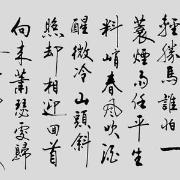 輕勝馬誰怕一
蓑煙雨任平生
料峭春風吹酒
醒微冷山頭斜
照却相迎回首
向来蕭瑟處歸